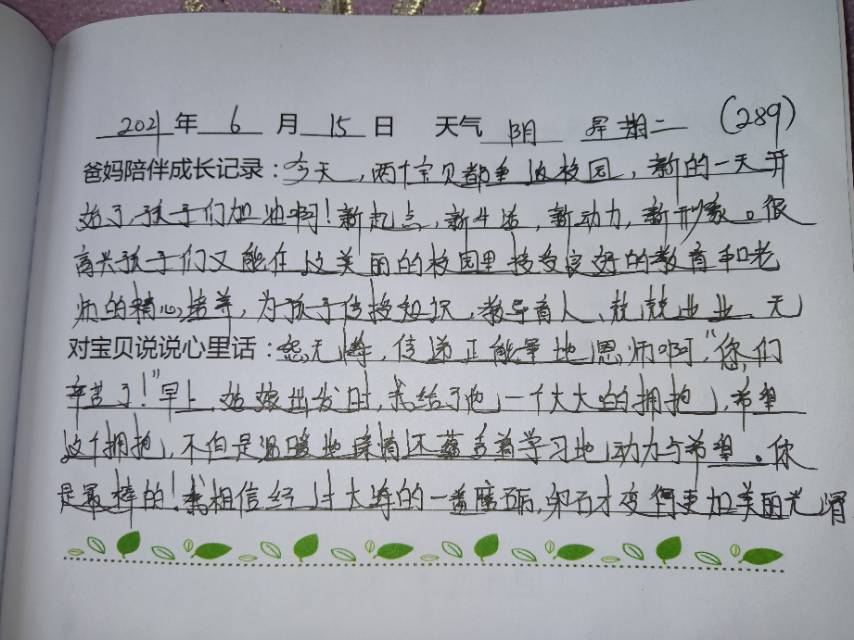 2021年6月15日 天气 阴 星期二 (289)
爸妈陪伴成长记录:今天,两个宝贝都争返校园,新的一天开
始了,孩子们加油啊!新起点,新生活,新动力,新形象。很
高兴孩子们又能在这美丽的校园里接受良好的教育和老
师的精心培养,为孩子传授知识,教导育人、兢兢业业、无
对宝贝说说心里话:怨无悔,传递正能量地恩师啊,"您们
辛苦了!"早上,姑娘出发时,我给了她一个大大的拥抱,希望
这个拥抱,不但是温暖地亲情还蕴含着学习地动力与希望。你
是最棒的!我相信经过大海的一番磨砺,卵石才变得更加美丽光滑